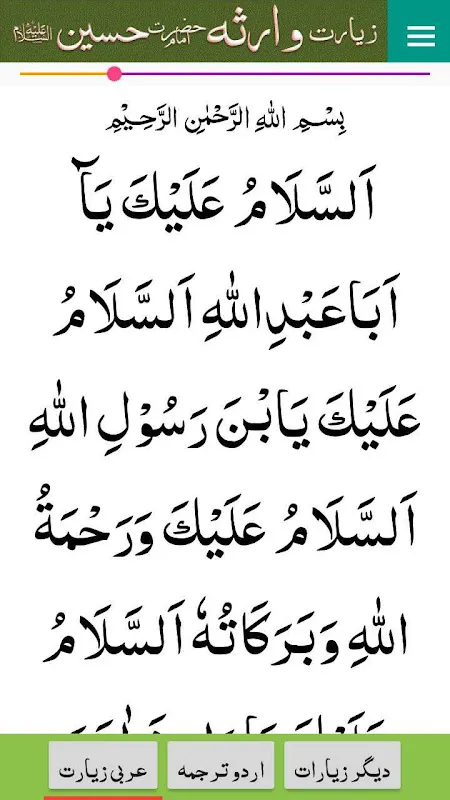 زیارت وارثہ حضرت امام حسین علیہ السلام
بِسْمِ اللهِ الرَّحْمٰنِ الرَّحِيْمِ
اَلسَّلَامُ عَلَيْكَ يَآ
اَبَاعَبْدِاللهِ اَلسَّلَامُ
عَلَيْكَ يَابْنَ رَسُوْلِ اللهِ
اَلسَّلَامُ عَلَيْكَ وَرَحْمَةُ
اللهِ وَبَرَكَاتُهٗ اَلسَّلَامُ
عربی زیارت
اردو ترجمہ
دیگر زیارات